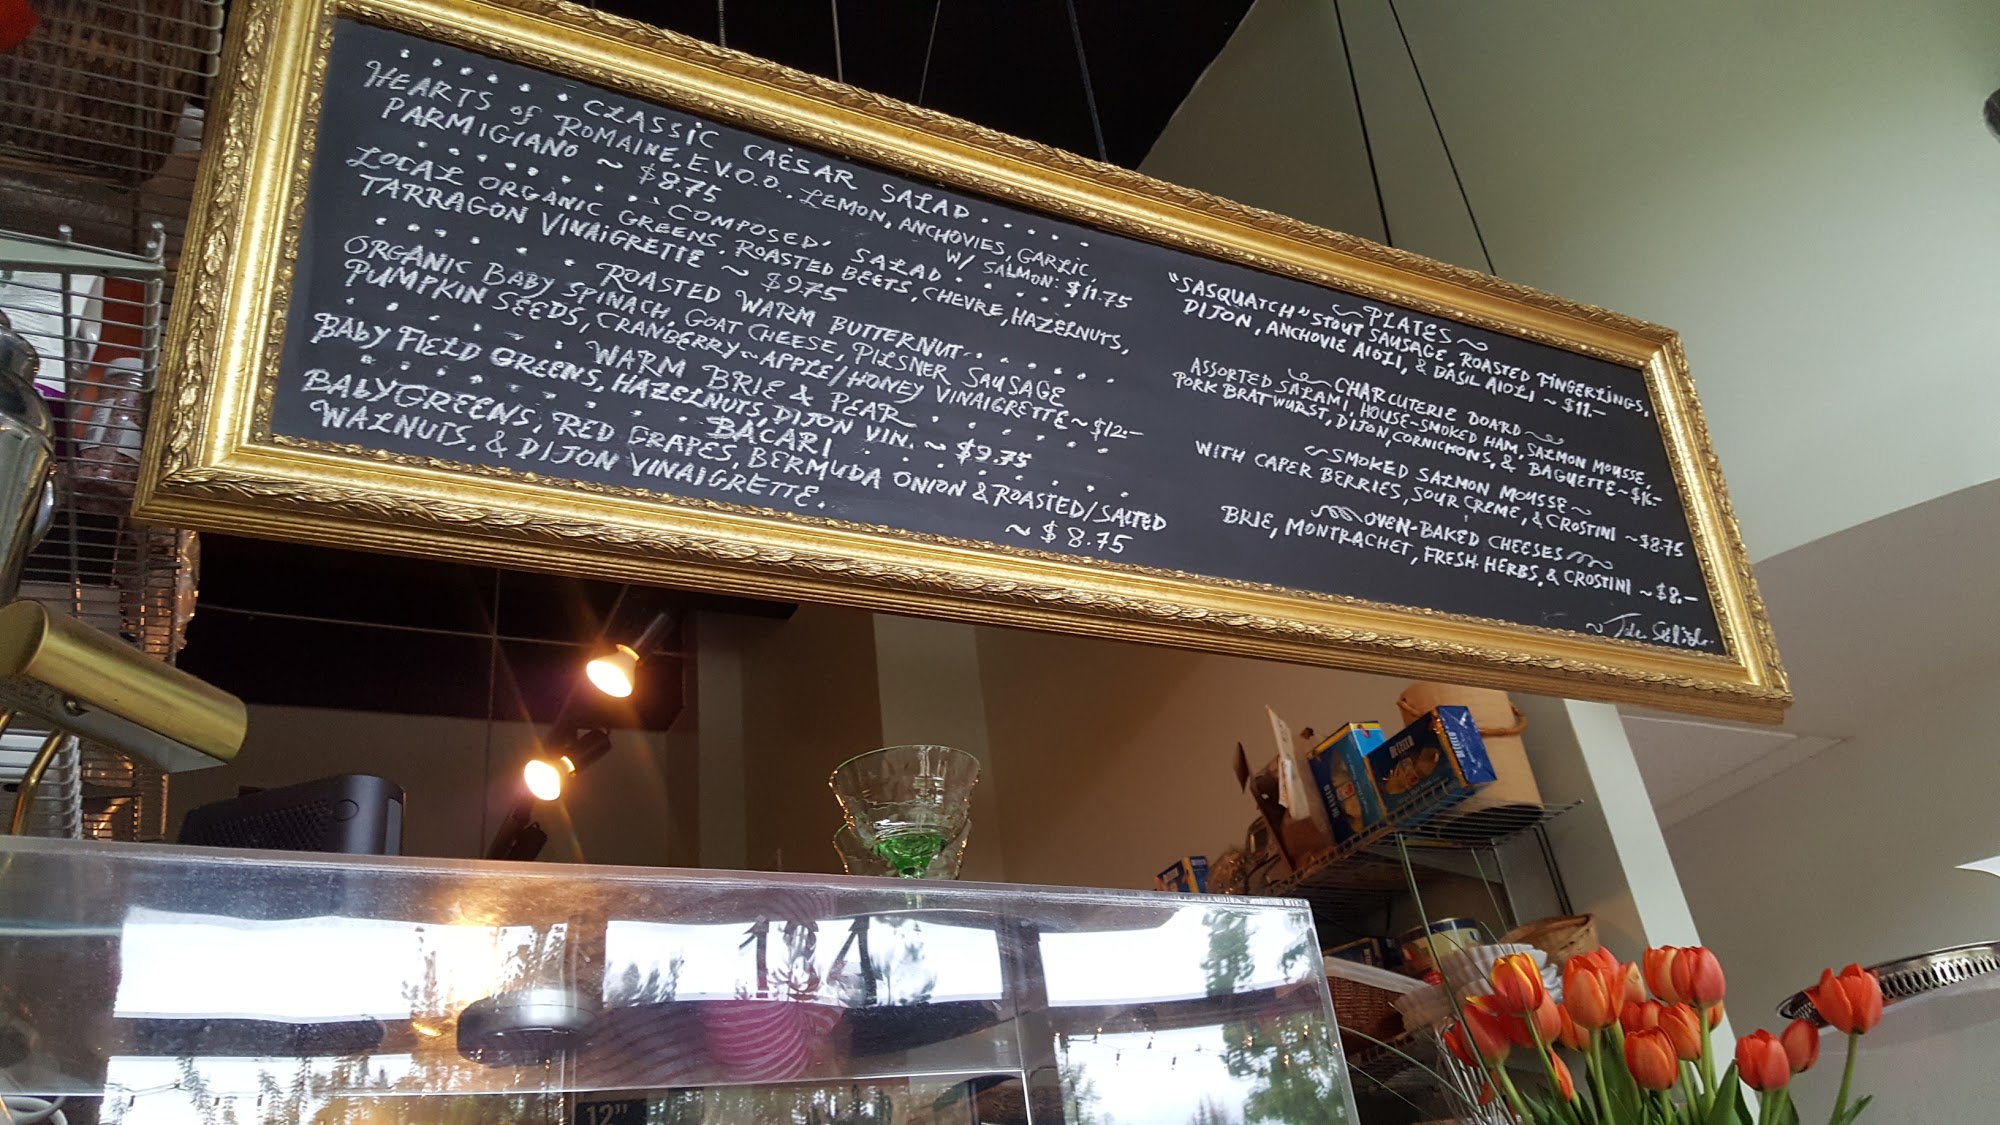 CLASSIC CAESAR SALAD
HEARTS of ROMAINE, E.V.O.O., LEMON, ANCHOVIES, GARLIC,
PARMIGIANO ~ $8.75
W/ SALMON: $11.75
COMPOSED SALAD
LOCAL ORGANIC GREENS, ROASTED BEETS, CHEVRE, HAZELNUTS,
TARRAGON VINAIGRETTE ~ $9.75
ROASTED WARM BUTTERNUT
ORGANIC BABY SPINACH, GOAT CHEESE, PILSNER SAUSAGE
PUMPKIN SEEDS, CRANBERRY~APPLE/HONEY VINAIGRETTE ~ $12.—
WARM BRIE & PEAR
BABY FIELD GREENS, HAZELNUTS, DIJON VIN. ~ $9.75
BACARI
BABY GREENS, RED GRAPES, BERMUDA ONION & ROASTED/SALTED
WALNUTS, & DIJON VINAIGRETTE.
~ $8.75
~PLATES~
"SASQUATCH" STOUT SAUSAGE, ROASTED FINGERLINGS,
DIJON, ANCHOVIE AIOLI, & BASIL AIOLI ~ $11.—
CHARCUTERIE BOARD
ASSORTED SALAMI, HOUSE-SMOKED HAM, SALMON MOUSSE,
PORK BRATWURST, DIJON, CORNICHONS, & BAGUETTE ~ $16.—
SMOKED SALMON MOUSSE ~
WITH CAPER BERRIES, SOUR CREME, & CROSTINI ~ $8.75
OVEN-BAKED CHEESES
BRIE, MONTRACHET, FRESH HERBS, & CROSTINI ~ $8.—
DE CECCO
DE CECCO
12"